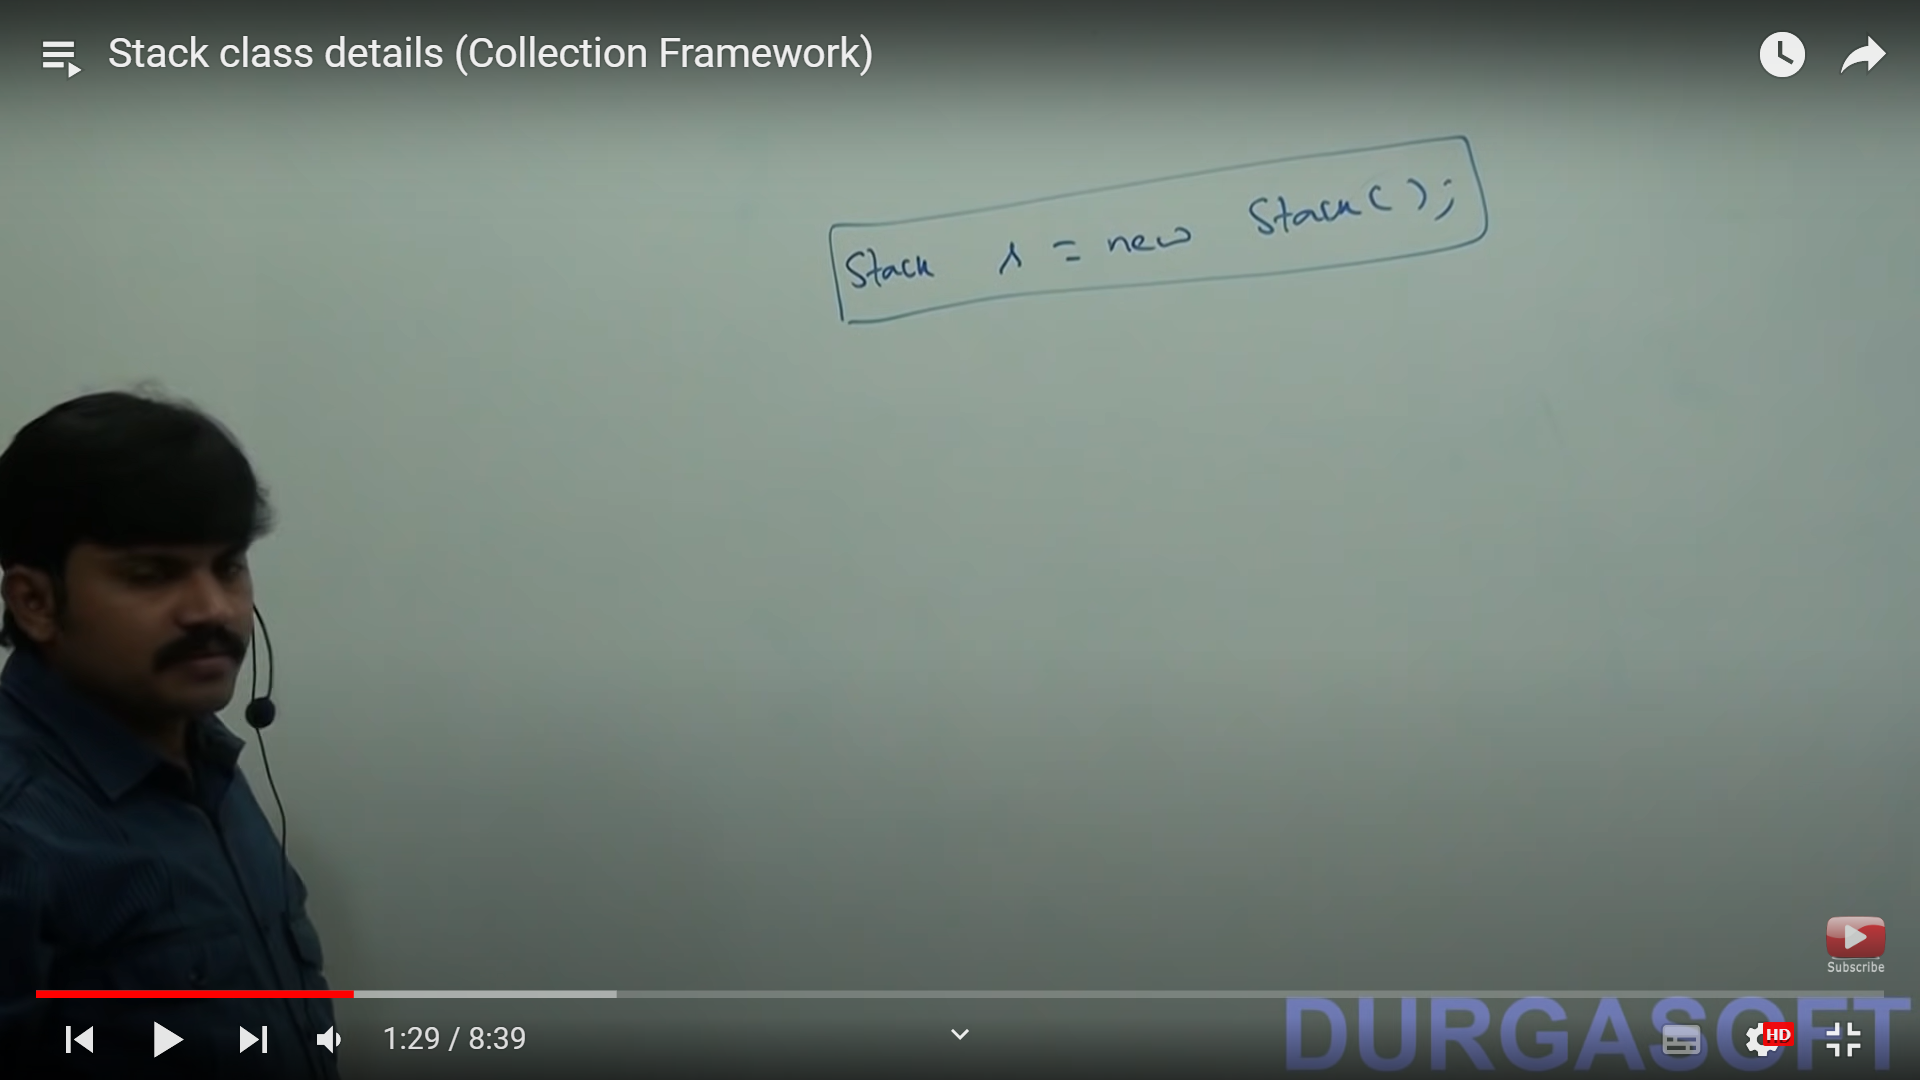 Stack class details (Collection Framework)
Stack s = new Stack();
Subscribe
1:29 / 8:39
HD
DURGASOFT